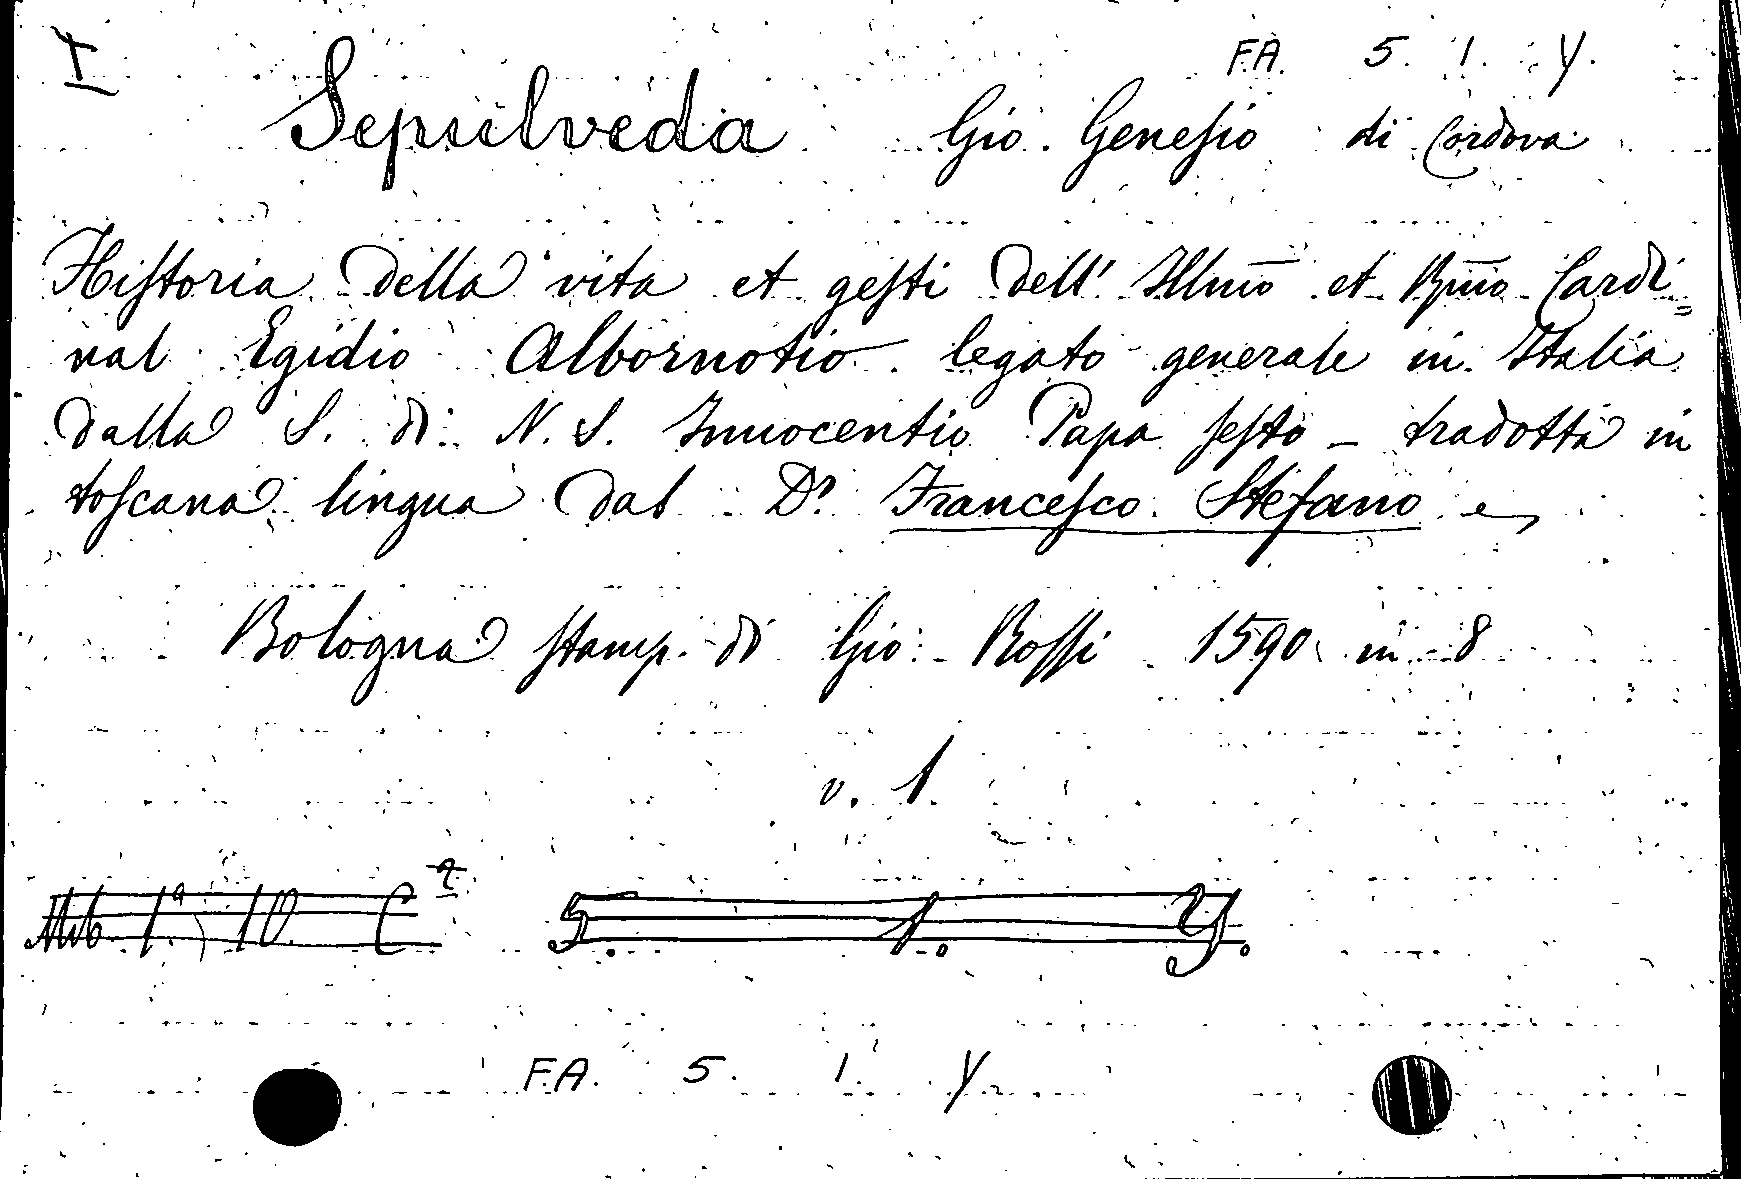 I
F.A. 5. 1. Y.
Sepulveda Gio. Genesio di Cordova
Historia della vita et gesti dell' Illmo et Rmo Cardi=
nal Egidio Albornotio legato generale in Italia
dalla S. di N. S. Innocentio Papa sesto - tradotta in
toscana lingua dal Dr. Francesco Stefano
Bologna stamp. di Gio: Rossi 1590 in 8
v. 1.
1ª 10 C 5. 1. Y.
F.A. 5. 1. Y